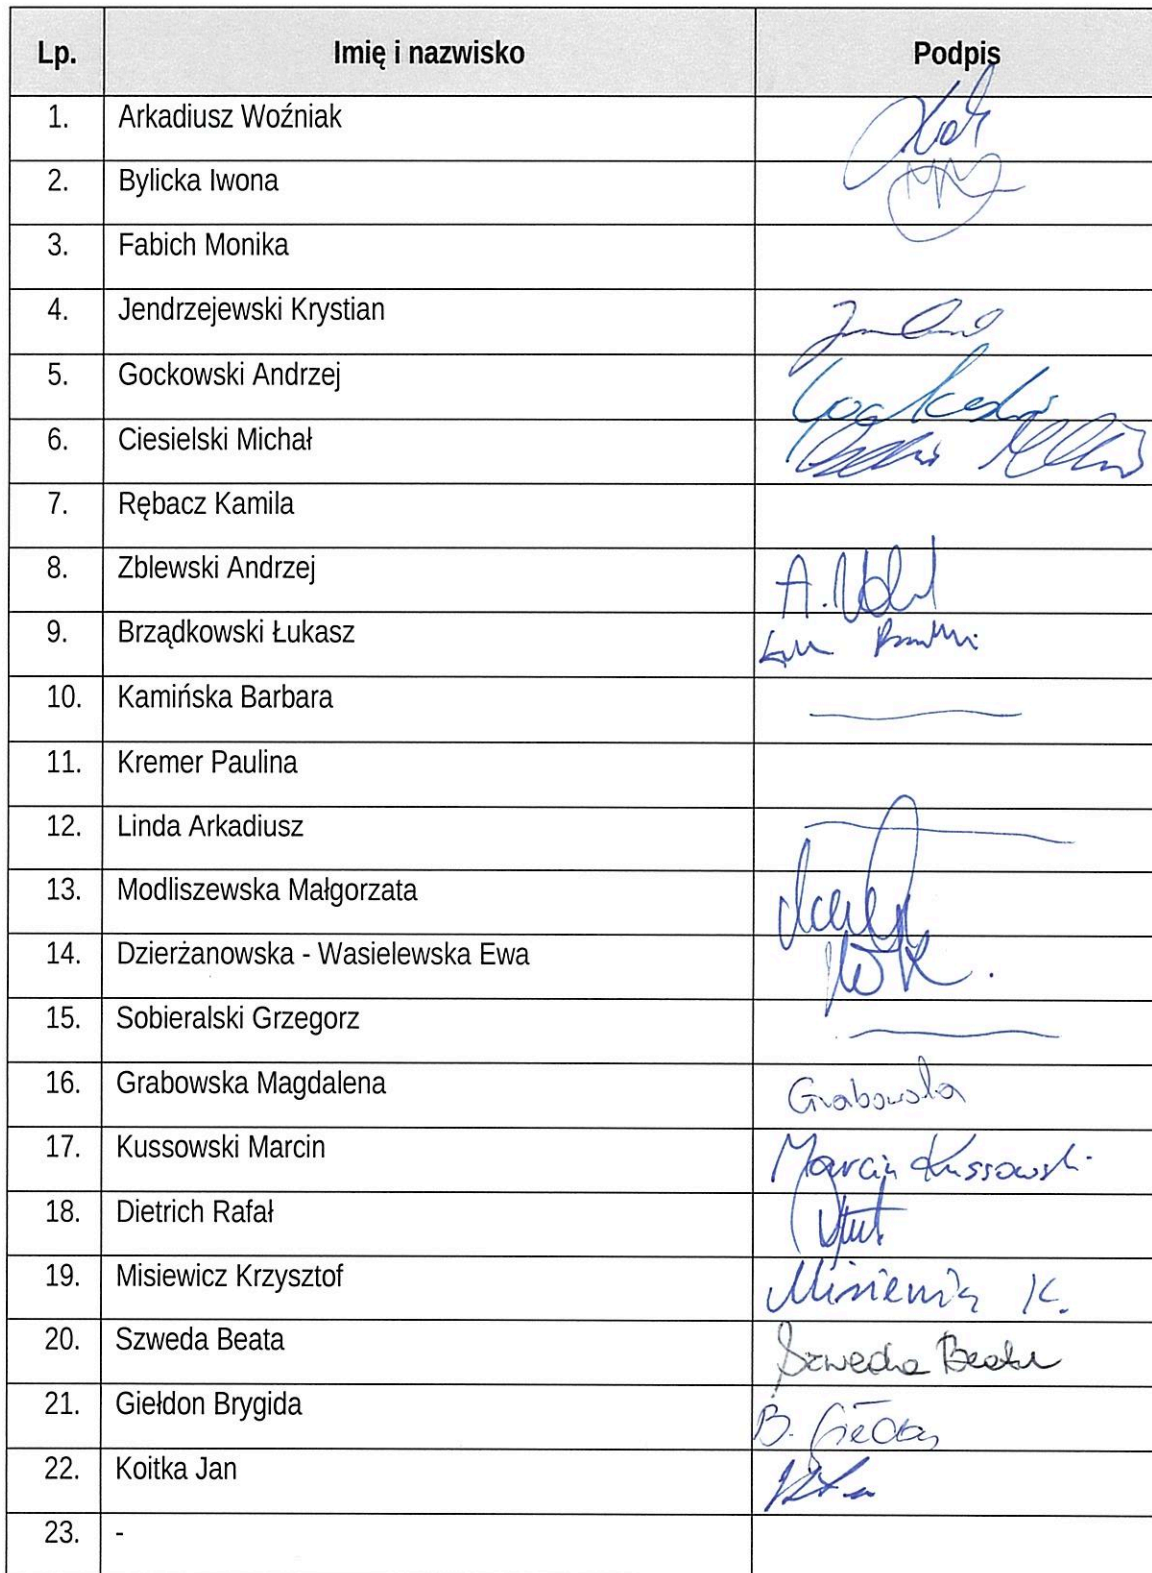 Lp. Imię i nazwisko Podpis
1. Arkadiusz Woźniak
2. Bylicka Iwona
3. Fabich Monika
4. Jendrzejewski Krystian
5. Gockowski Andrzej
6. Ciesielski Michał
7. Rębacz Kamila
8. Zblewski Andrzej A.
9. Brządkowski Łukasz
10. Kamińska Barbara
11. Kremer Paulina
12. Linda Arkadiusz
13. Modliszewska Małgorzata
14. Dzierżanowska - Wasielewska Ewa
15. Sobieralski Grzegorz
16. Grabowska Magdalena Grabowska
17. Kussowski Marcin Marcin Kussowski
18. Dietrich Rafał
19. Misiewicz Krzysztof Misiewicz K.
20. Szweda Beata Szweda Beata
21. Giełdon Brygida B. Giełdon
22. Koitka Jan
23. -